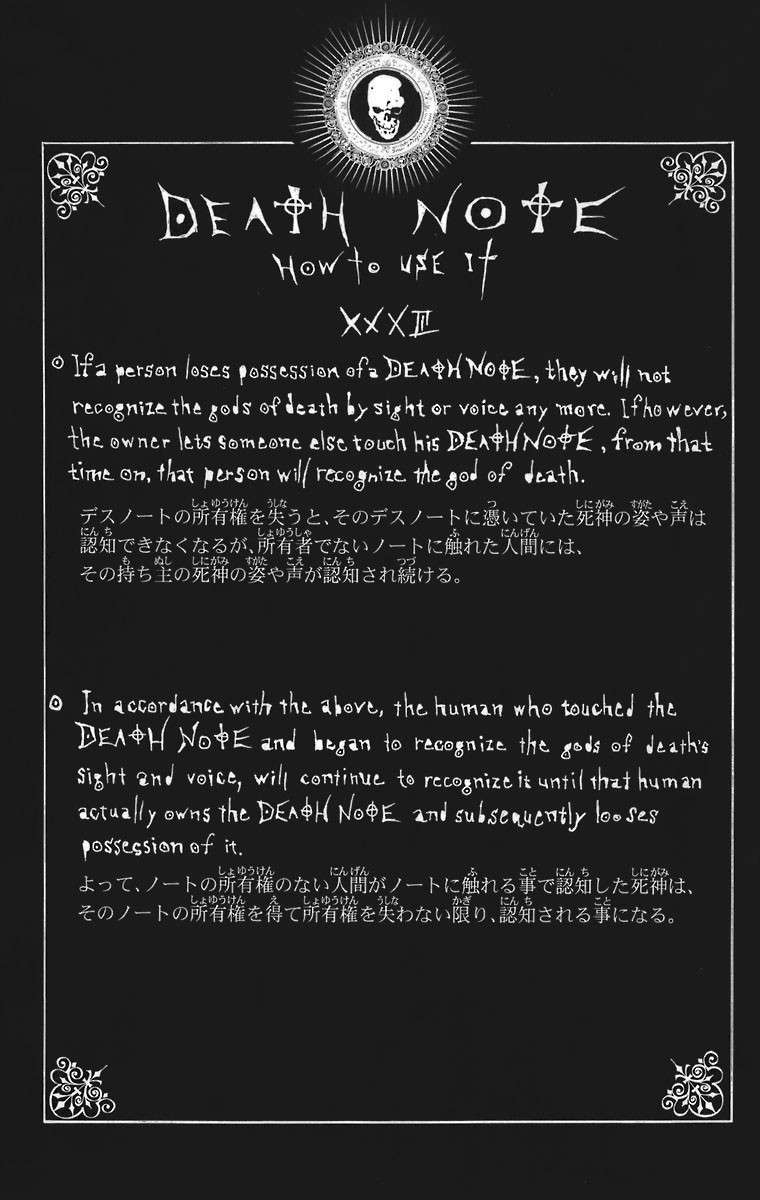 DEATH NOTE
HOW to USE IT
XXXIII
If a person loses possession of a DEATH NOTE, they will not
recognize the gods of death by sight or voice any more. If however,
the owner lets someone else touch his DEATH NOTE, from that
time on, that person will recognize the god of death.
デスノートの所有権を失うと、そのデスノートに憑いていた死神の姿や声は
認知できなくなるが、所有者でないノートに触れた人間には、
その持ち主の死神の姿や声が認知され続ける。
In accordance with the above, the human who touched the
DEATH NOTE and began to recognize the gods of death's
sight and voice, will continue to recognize it until that human
actually owns the DEATH NOTE and subsequently looses
possession of it.
よって、ノートの所有権のない人間がノートに触れる事で認知した死神は、
そのノートの所有権を得て所有権を失わない限り、認知される事になる。